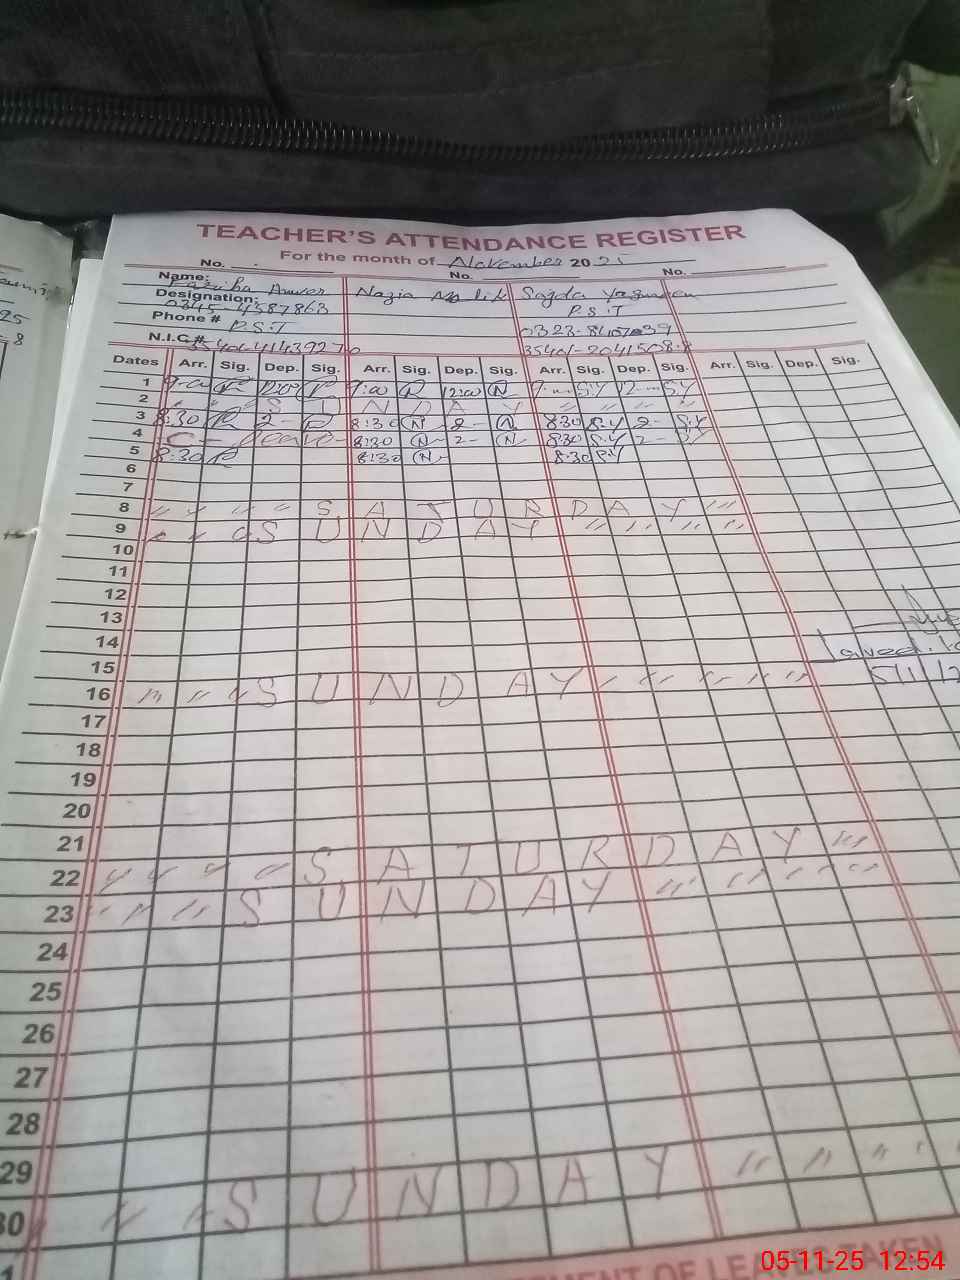 TEACHER'S ATTENDANCE REGISTER
For the month of November 2025
No. No. No.
Name: Anwer Nazia Malik Sajda Yasmeen
Designation: P.S.T
0345-4387863
Phone # P.S.T 0323-
N.I.C.# 35401-2041508-8
Dates Arr. Sig. Dep. Sig. Arr. Sig. Dep. Sig. Arr. Sig. Dep. Sig. Arr. Sig. Dep. Sig.
1 9:00 12:00 9:00 12:00 N 9 S.Y 12 S.Y
2 " " S U N D A Y " " " "
3 8:30 2- 8:30 N 2- N 8:30 S.Y 2- S.Y
4 C - Leave - 8:30 N 2- N 8:30 S.Y 2-
5 8:30 8:30 N 8:30 S.Y
6
7
8 " " " " S A T U R D A Y " "
9 " " " S U N D A Y " " " "
10
11
12
13
14
15
16 " " " S U N D A Y " " " " "
17
18
19
20
21
22 " " " " S A T U R D A Y "
23 " " " S U N D A Y " " " "
24
25
26
27
28
29
30 " " S U N D A Y " " " "
OF LEAVES TAKEN
05-11-25 12:54